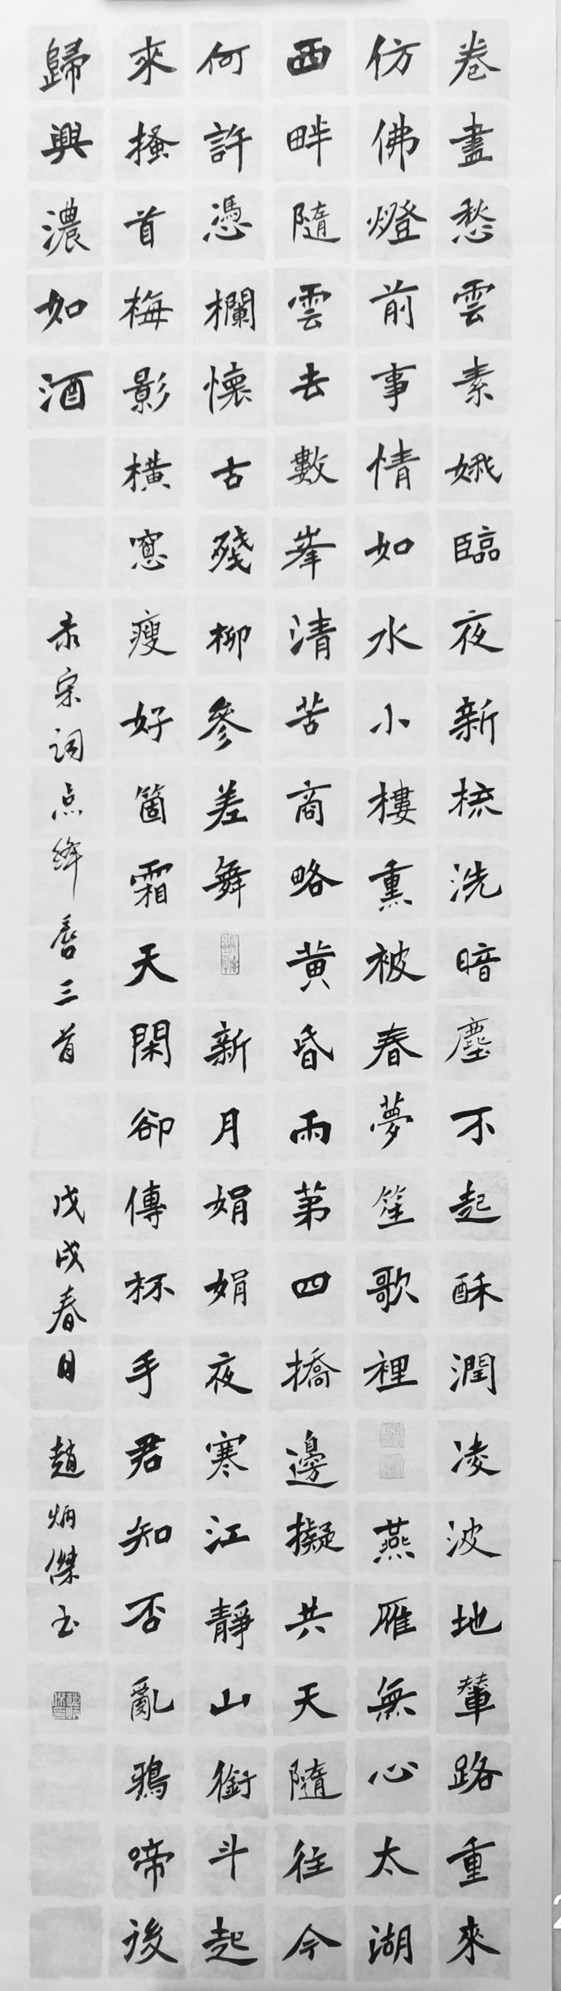 卷盡愁雲素娥臨夜新梳洗暗塵不起酥潤凌波地輦路重來
仿佛燈前事情如水小樓熏被春夢笙歌裡 燕雁無心太湖
西畔隨雲去數峯清苦商略黃昏雨第四橋邊擬共天隨往今
何許憑欄懷古殘柳參差舞 新月娟娟夜寒江靜山銜斗起
來搔首梅影橫窓瘦好箇霜天閑卻傳杯手君知否亂鴉啼後
歸興濃如酒 录宋词点绛唇三首 戊戌春日 趙炳傑书